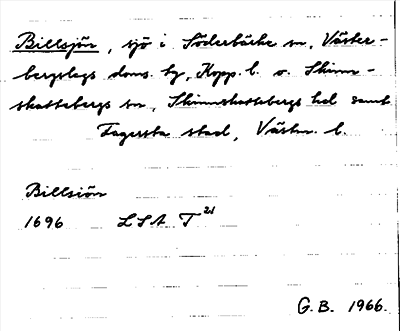 Billsjön, sjö i Söderbärke sn, Väster-
bergslags doms. hg, Kopp. l. o. Skinn-
skattebergs sn, Skinnskattebergs hd samt
Fagersta stad, Västm. l.
Billsiön
1696 LSA T 21
G.B. 1966.